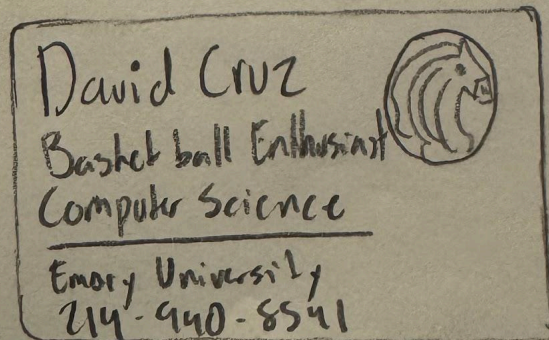 David Cruz
Basketball Enthusiast
Computer Science
Emory University
214-940-8541